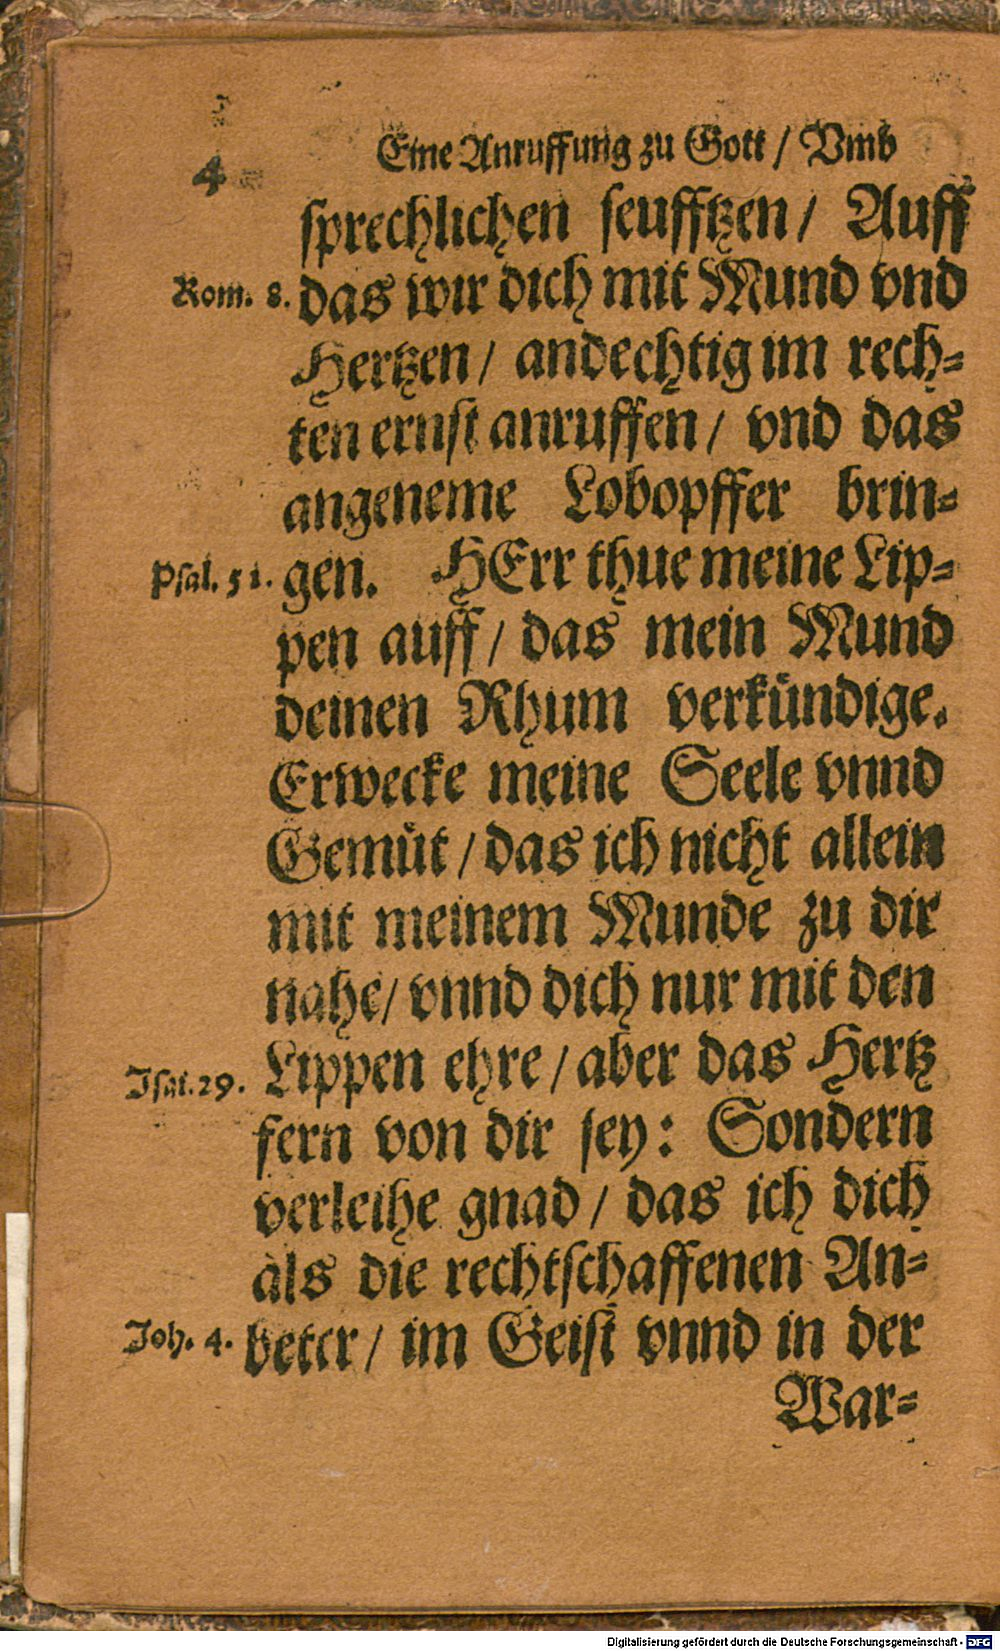 4
Eine Anruffung zu Gott / Vmb
sprechlichen seufftzen / Auff
Rom. 8. das wir dich mit Mund vnd
Hertzen / andechtig im rech-
ten ernst anruffen / vnd das
angeneme Lobopffer brin-
Psal. 51. gen. HErr thue meine Lip-
pen auff / das mein Mund
deinen Rhum verkündige.
Erwecke meine Seele vnnd
Gemüt / das ich nicht allein
mit meinem Munde zu dir
nahe / vnnd dich nur mit den
Isai. 29. Lippen ehre / aber das Hertz
fern von dir sey: Sondern
verleihe gnad / das ich dich
als die rechtschaffenen An-
Joh. 4. beter / im Geist vnnd in der
War-
Digitalisierung gefördert durch die Deutsche Forschungsgemeinschaft - DFG